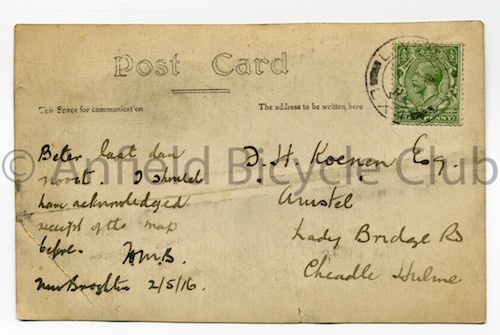 Post Card
This Space for communication
The address to be written here
© Anfield Bicycle Club
Beter laat dan
nooit. I should
have acknowledged
receipt of the map
before. 
New Brighton 2/5/16.
D. H. Koenen Esq.
Amstel
Lady Bridge Rd
Cheadle Hulme